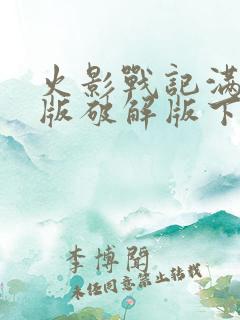 火影戰記滿
版破解版下
李博聞
未经同意禁止转载